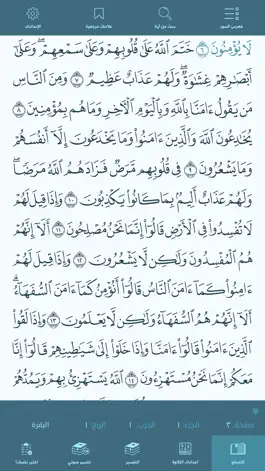 فهرس السور
بحث عن آية
علامات مرجعية
الإعدادات
لَا يُؤْمِنُونَ ٦ خَتَمَ ٱللَّهُ عَلَىٰ قُلُوبِهِمْ وَعَلَىٰ سَمْعِهِمْ ۖ وَعَلَىٰٓ
أَبْصَٰرِهِمْ غِشَٰوَةٌ ۖ وَلَهُمْ عَذَابٌ عَظِيمٌ ٧ وَمِنَ ٱلنَّاسِ
مَن يَقُولُ ءَامَنَّا بِٱللَّهِ وَبِٱلْيَوْمِ ٱلْءَاخِرِ وَمَا هُم بِمُؤْمِنِينَ ٨
يُخَٰدِعُونَ ٱللَّهَ وَٱلَّذِينَ ءَامَنُوا۟ وَمَا يَخْدَعُونَ إِلَّآ أَنفُسَهُمْ
وَمَا يَشْعُرُونَ ٩ فِى قُلُوبِهِم مَّرَضٌ فَزَادَهُمُ ٱللَّهُ مَرَضًا ۖ
وَلَهُمْ عَذَابٌ أَلِيمٌۢ بِمَا كَانُوا۟ يَكْذِبُونَ ١٠ وَإِذَا قِيلَ لَهُمْ
لَا تُفْسِدُوا۟ فِى ٱلْأَرْضِ قَالُوٓا۟ إِنَّمَا نَحْنُ مُصْلِحُونَ ١١ أَلَآ إِنَّهُمْ
هُمُ ٱلْمُفْسِدُونَ وَلَٰكِن لَّا يَشْعُرُونَ ١٢ وَإِذَا قِيلَ لَهُمْ
ءَامِنُوا۟ كَمَآ ءَامَنَ ٱلنَّاسُ قَالُوٓا۟ أَنُؤْمِنُ كَمَآ ءَامَنَ ٱلسُّفَهَآءُ ۗ
أَلَآ إِنَّهُمْ هُمُ ٱلسُّفَهَآءُ وَلَٰكِن لَّا يَعْلَمُونَ ١٣ وَإِذَا لَقُوا۟
ٱلَّذِينَ ءَامَنُوا۟ قَالُوٓا۟ ءَامَنَّا وَإِذَا خَلَوْا۟ إِلَىٰ شَيَٰطِينِهِمْ قَالُوٓا۟ إِنَّا
مَعَكُمْ إِنَّمَا نَحْنُ مُسْتَهْزِءُونَ ١٤ ٱللَّهُ يَسْتَهْزِئُ بِهِمْ وَيَمُدُّهُمْ
صفحة: ٣ الجزء: ١ الحزب: ١ الربع: ١ البقرة
التصفح
إعدادات التلاوة
التفسير
تفسير صوتي
اختبر نفسك!